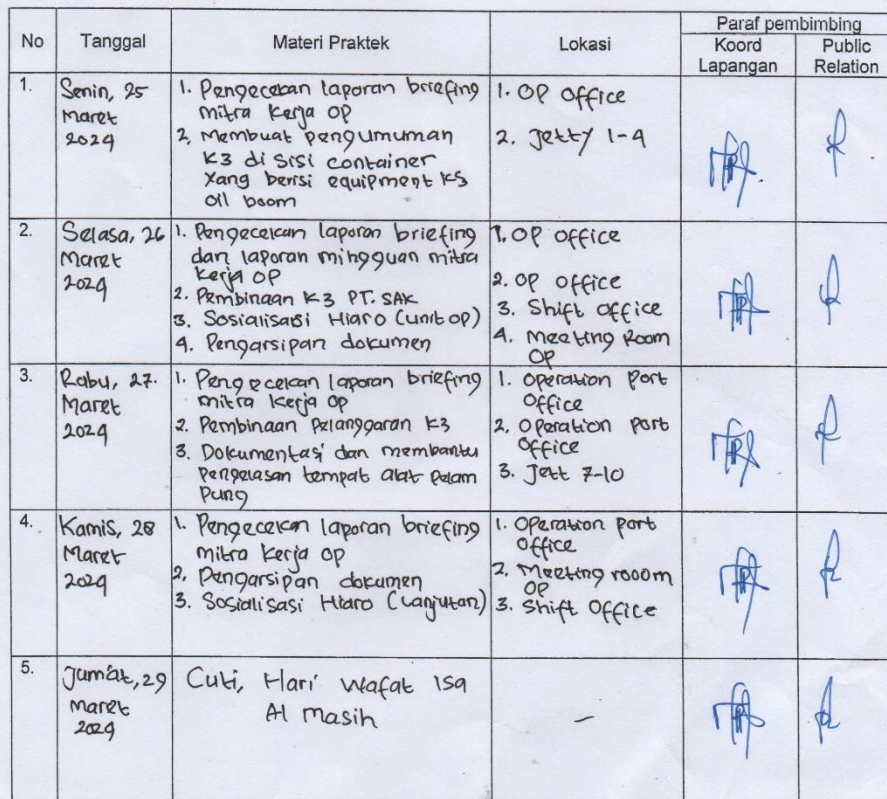 No Tanggal Materi Praktek Lokasi Paraf pembimbing
Koord Lapangan Public Relation
1. Senin, 25 Maret 2024
1. Pengecekan laporan briefing
mitra kerja OP
2. Membuat pengumuman
K3 di sisi container
yang berisi equipment K3
oil boom
1. OP Office
2. Jetty 1-4
2. Selasa, 26 Maret 2024
1. Pengecekan laporan briefing
dan laporan mingguan mitra
kerja OP
2. Pembinaan K3 PT. SAK
3. Sosialisasi Hiaro (unit op)
4. Pengarsipan dokumen
1. OP Office
2. OP Office
3. Shift Office
4. Meeting Room
OP
3. Rabu, 27. Maret 2024
1. Pengecekan laporan briefing
mitra kerja OP
2. Pembinaan Pelanggaran K3
3. Dokumentasi dan membantu
pengelasan tempat alat pelam
pung
1. Operation Port
Office
2. Operation port
Office
3. Jett 7-10
4. Kamis, 28 Maret 2024
1. Pengecekan laporan briefing
mitra kerja OP
2. Pengarsipan dokumen
3. Sosialisasi Hiaro (Lanjutan)
1. Operation port
Office
2. Meeting rooom
OP
3. Shift Office
5. Jum'at, 29 Maret 2024
Cuti, Hari Wafat Isa
Al Masih
-